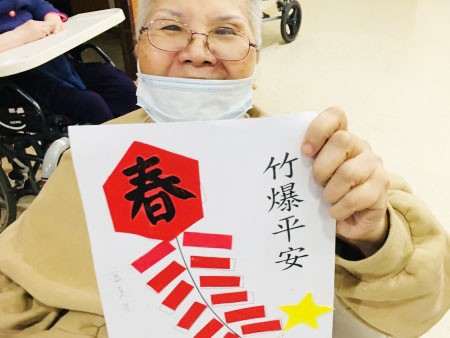 春
竹爆平安